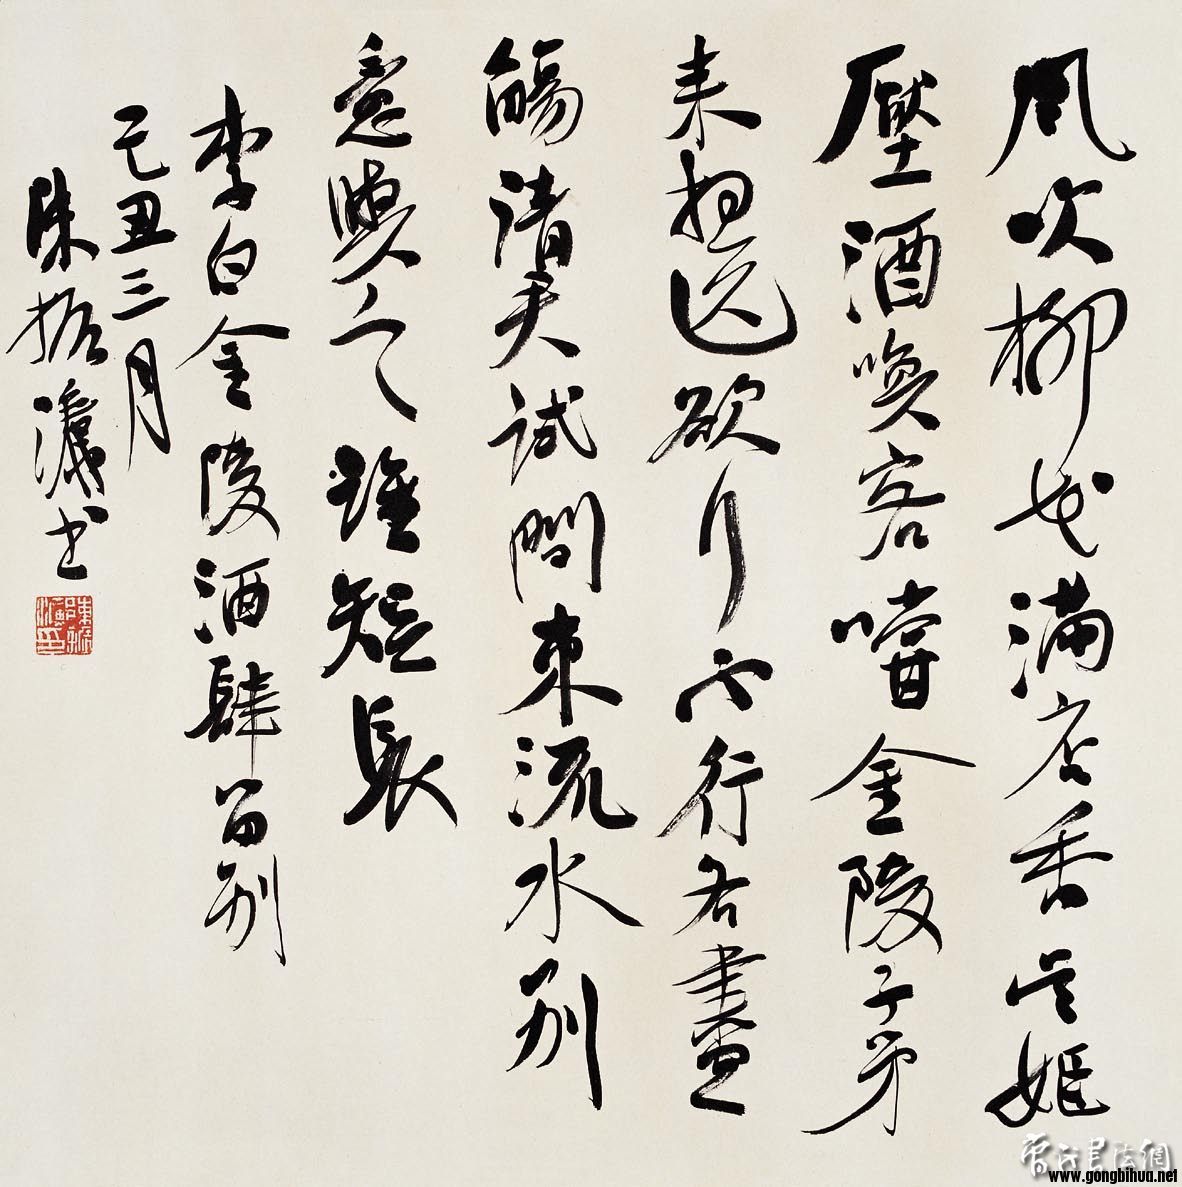 風吹柳花滿店香吳姬
壓酒喚客嘗金陵子弟
来相送欲行不行各盡
觴請君試問東流水別
意與之誰短長
李白金陵酒肆留別
己丑三月
陳振濂書
書法網
www.gongbihua.net